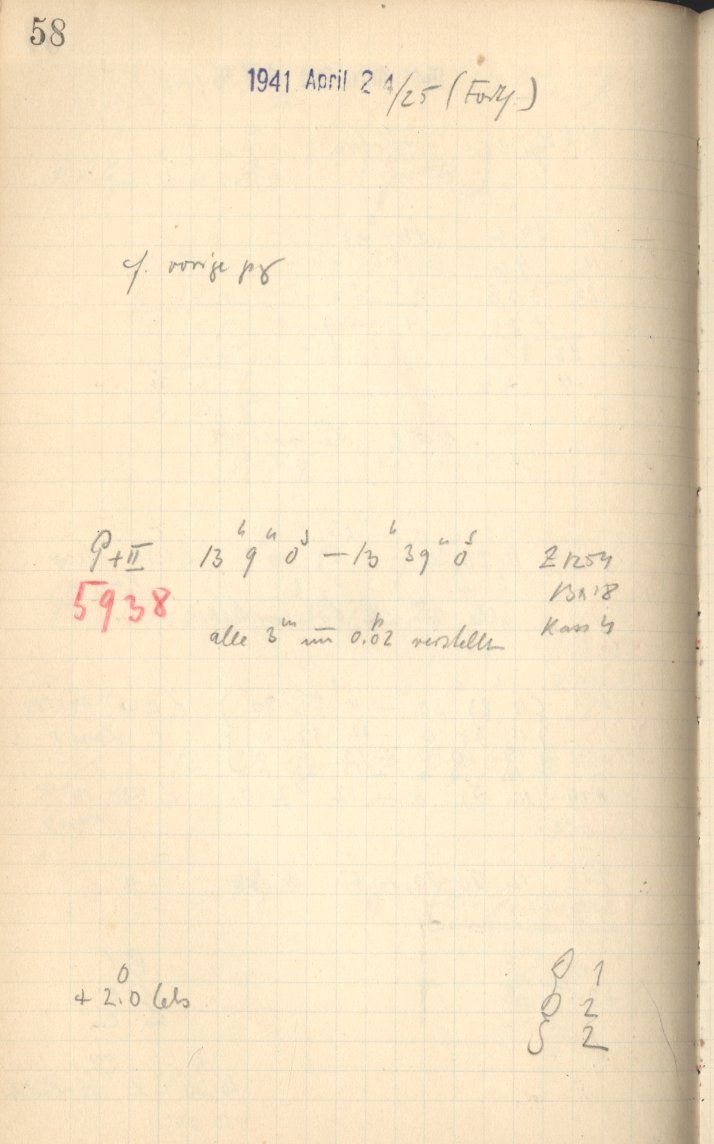 58
1941 April 24/25 (Forts.)
cf. vorige pg
P+II 13ʰ 9ᵐ 0ˢ — 13ʰ 39ᵐ 0ˢ Z 1254
5938 B x 18
alle 3ᵐ um 0.ᵖ02 verstellt Kass 4
+ 2.⁰0 Cels
D 1
D 2
S 2